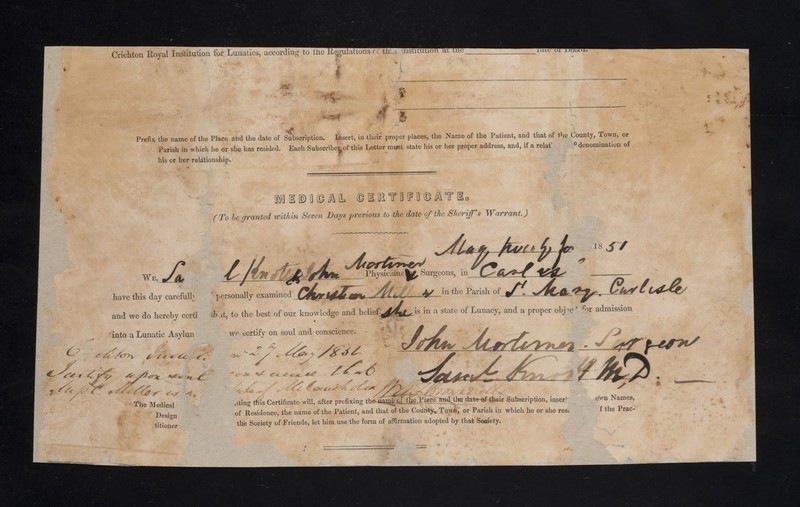 Crichton Royal Institution for Lunatics, according to the Regulations of the Institution at the rate of Board.
£
£
Prefix the name of the Place and the date of Subscription. Insert, in their proper places, the Name of the Patient, and that of the County, Town, or
Parish in which he or she has resided. Each Subscriber of this Letter must state his or her proper address, and, if a relat denomination of
his or her relationship.
MEDICAL CERTIFICATE.
(To be granted within Seven Days previous to the date of the Sheriff's Warrant.)
May 1851
WE, Sa l Knott & John Mortimer Physicians & Surgeons, in Carlisle
have this day carefully personally examined Christian Mil r in the Parish of St. Mary. Carlisle
and we do hereby certi that, to the best of our knowledge and belief she is in a state of Lunacy, and a proper obje for admission
into a Lunatic Asylum we certify on soul and conscience.
John Mortimer. Surgeon
27 May 1851
Saml Knott M.D.
upon soul conscience that
Miller is
The Medical ting this Certificate will, after prefixing the name of the Place and the date of their Subscription, insert own Names,
Design of Residence, the name of the Patient, and that of the County, Town, or Parish in which he or she res f the Prac-
titioner the Society of Friends, let him use the form of affirmation adopted by that Society.